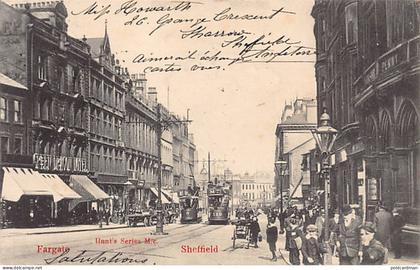 Miss Howarth
26. Grange Crescent
Sharrow
Sheffield
aimerait échange
cartes vues.
Fargate
Hunt's Series
Sheffield
Salutations
postcardman